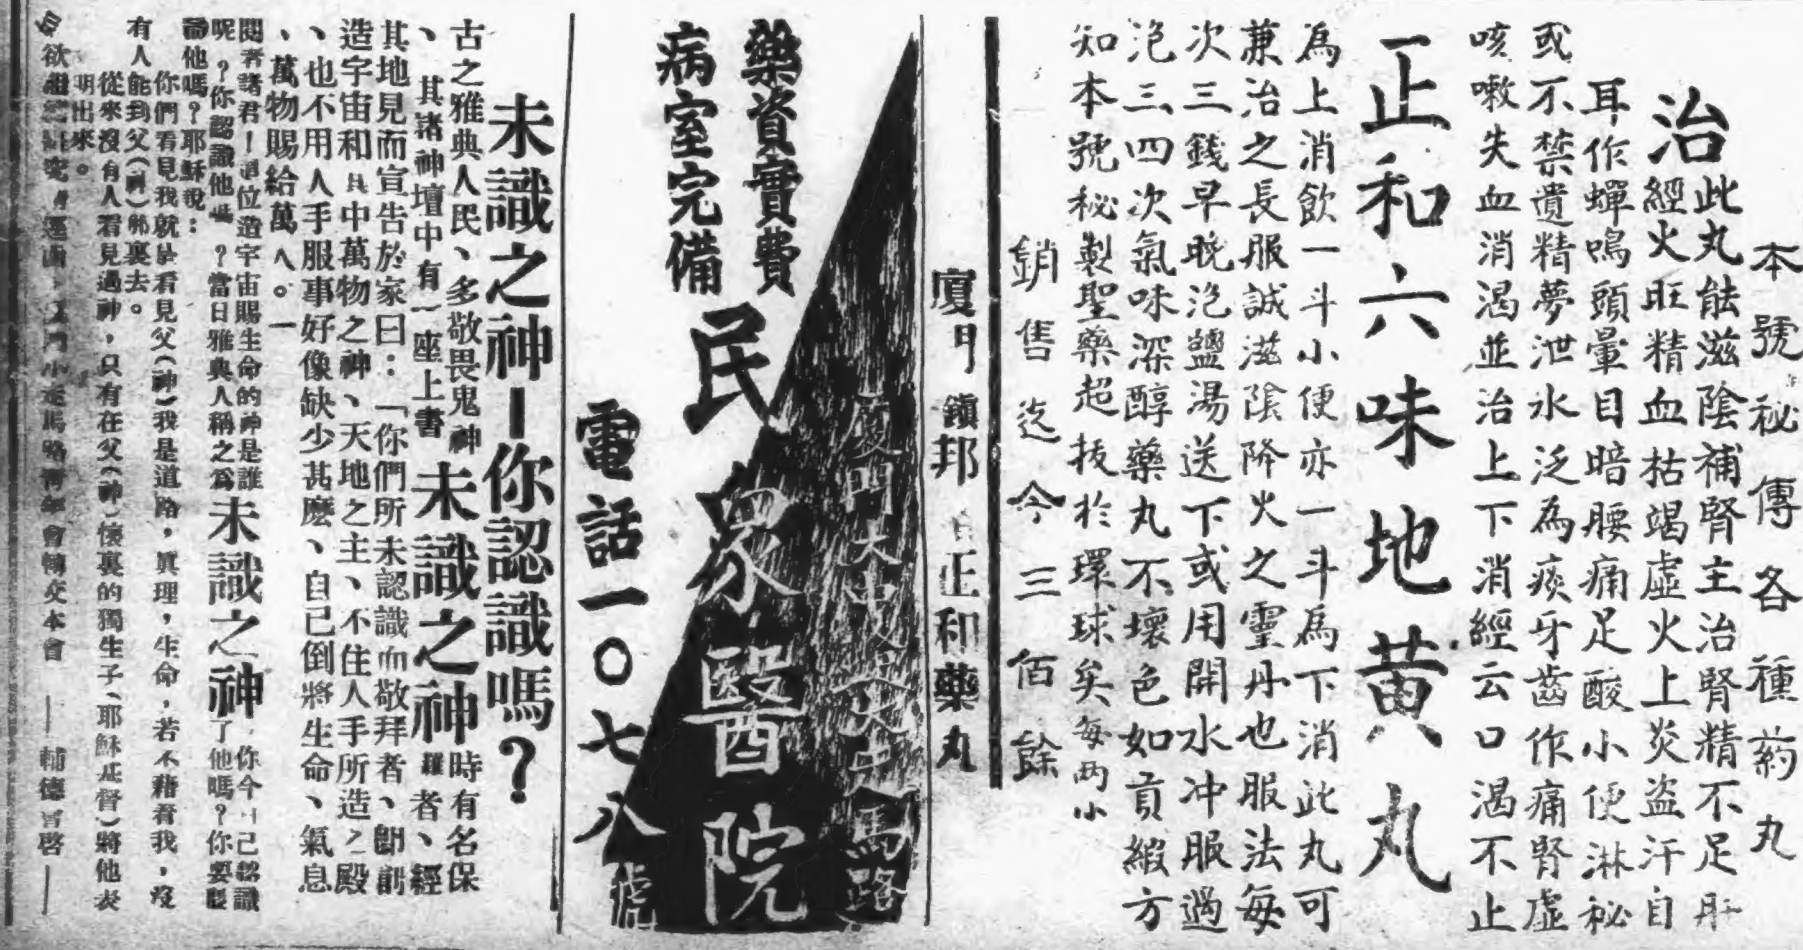 本號秘傳各種葯丸
治此丸能滋陰補腎主治腎精不足肝
經火旺精血枯竭虛火上炎盜汗自
耳作蟬鳴頭暈目暗腰痛足酸小便淋秘
或不禁遺精夢泄水泛為痰牙齒作痛腎虛
咳嗽失血消渴並治上下消經云口渴不止
正和六味地黃丸
為上消飲一斗小便亦一斗為下消此丸可
兼治之長服誠滋陰降火之靈丹也服法每
次三錢早晚泡鹽湯送下或用開水冲服過
泡三四次氣味深醇藥丸不壞色如貢緞方
知本號秘製聖藥超技於環球矣每両小
銷售迄今三佰餘
廈門鎮邦 正和藥丸
藥資實費
病室完備
民眾醫院
廈門大史巷中馬路
電話一〇七八號
未識之神－你認識嗎？
古之雅典人民、多敬畏鬼神時有名保羅者、經
、其諸神壇中有一座上書未識之神
其地見而宣告於家曰：「你們所未認識而敬拜者、卽創
造宇宙和其中萬物之神、天地之主、不住人手所造之殿
、也不用人手服事好像缺少甚麼、自己倒將生命、氣息
、萬物賜給萬人。」
閱者諸君！這位造宇宙賜生命的神是誰
呢？你認識他嗎？當日雅典人稱之爲未識之神你今日己認識了他嗎？你要認
識他嗎？耶穌說：
你們看見我就是看見父(神)我是道路，眞理，生命，若不藉着我，沒
有人能到父(神)那裏去。
從來沒有人看見過神，只有在父(神)懷裏的獨生子(耶穌基督)將他表
明出來。
欲繼續研究 廈門小走馬路青年會轉交本會 ——輔德會啓——